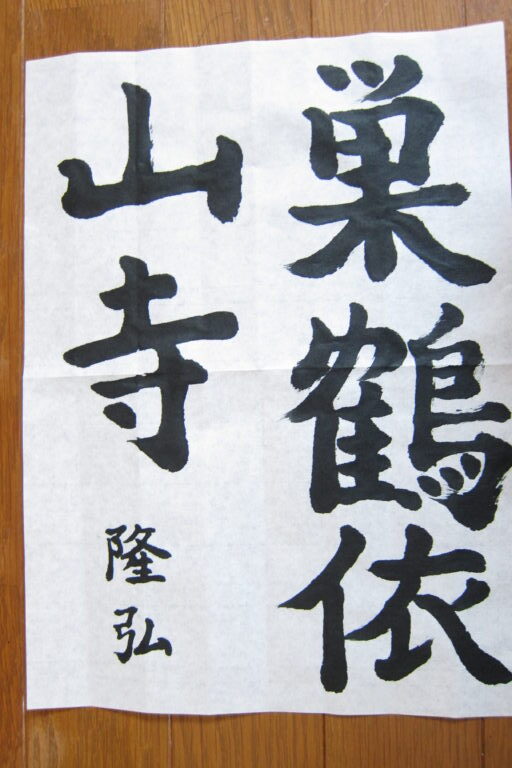 巣鶴依
山寺
隆弘